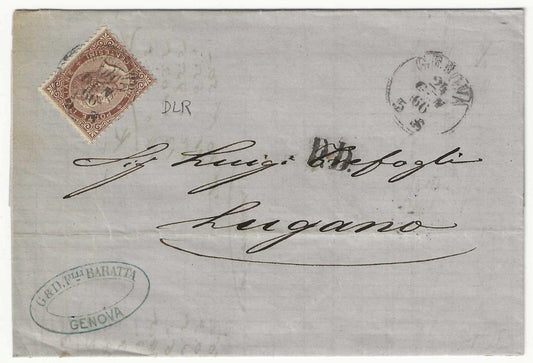 GENOVA
24
GEN
66
DLR
P.D.
Sig Luigi
Lugano
G & D. Flli BARATTA
GENOVA